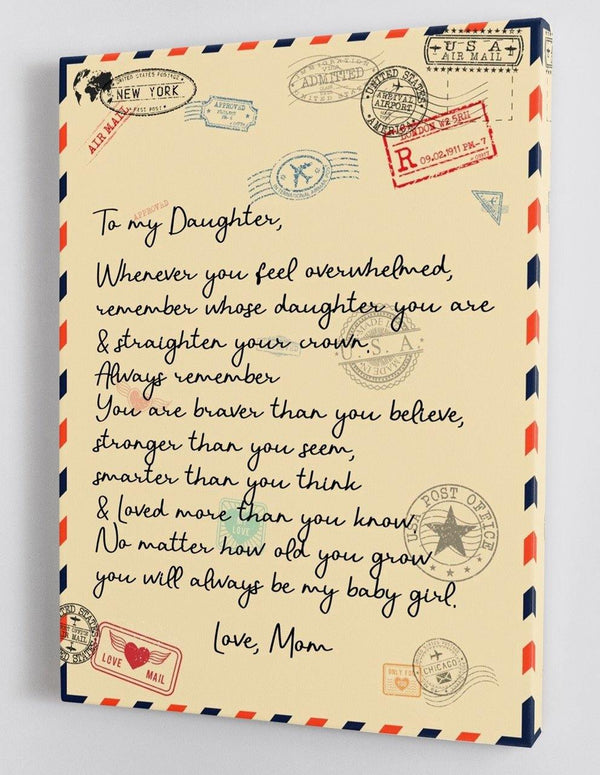 USA
AIR MAIL
UNITED STATES POSTAGE
NEW YORK
FAST POST
AIR MAIL
APPROVED
IMMIGRATION
ADMITTED
UNITED STATES
UNITED STATES
ARRIVAL
AIRPORT
AMERICA
LONDON W2 5RH
R 09.02.1911 PM-7
INTERNATIONAL AIRPORT
APPROVED
To my Daughter,
Whenever you feel overwhelmed,
remember whose daughter you are
& straighten your crown.
MADE IN
U.S.A.
MADE IN
Always remember
You are braver than you believe,
stronger than you seem,
smarter than you think
& Loved more than you know
LOVE
USA POST OFFICE
No matter how old you grow
you will always be my baby girl.
Love, Mom
UNITED STATES
AIR MAIL
LOVE MAIL
ONLY FOR
CHICAGO